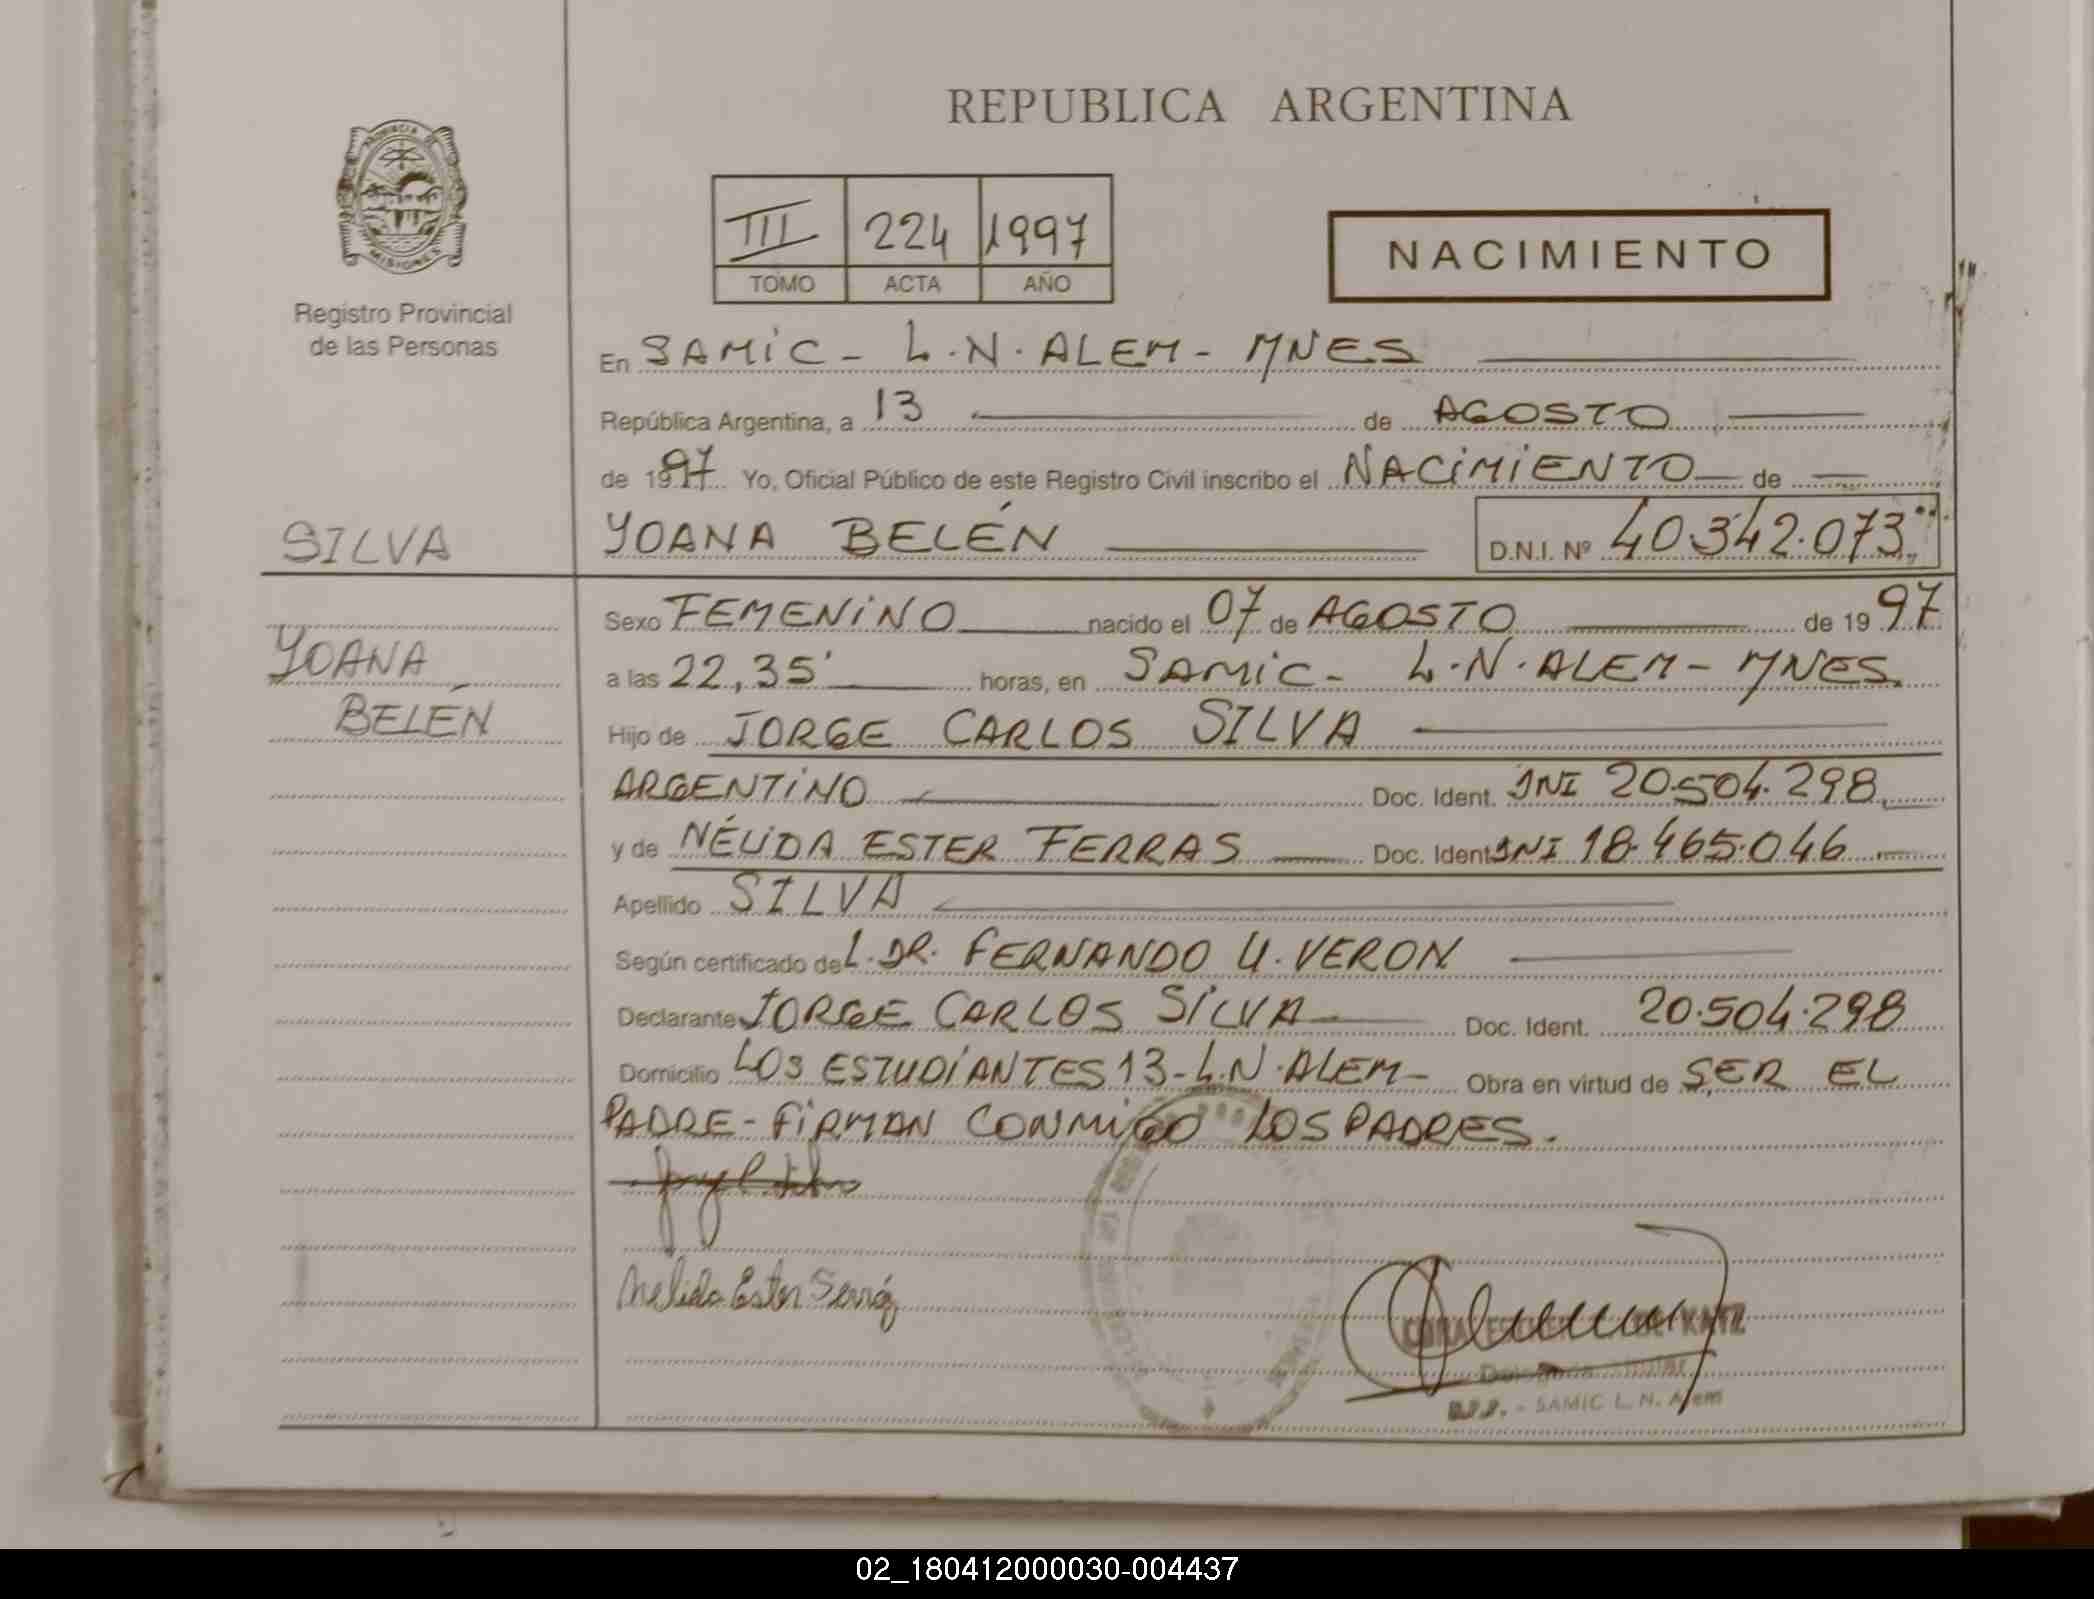 REPUBLICA ARGENTINA
PROVINCIA DE
MISIONES
Registro Provincial
de las Personas
III 224 1997
TOMO ACTA AÑO
NACIMIENTO
En SAMIC - L.N. ALEM - MNES
República Argentina, a 13 de AGOSTO
de 1997 Yo, Oficial Público de este Registro Civil inscribo el NACIMIENTO de
SILVA
YOANA BELÉN D.N.I. Nº 40.342.073
YOANA
BELÉN
Sexo FEMENINO nacido el 07 de AGOSTO de 1997
a las 22,35' horas, en SAMIC - L.N. ALEM - MNES.
Hijo de JORGE CARLOS SILVA
ARGENTINO Doc. Ident. DNI 20.504.298
y de NÉLIDA ESTER FERRAS Doc. Ident. DNI 18.465.046
Apellido SILVA
Según certificado de L. DR. FERNANDO U. VERON
Declarante JORGE CARLOS SILVA Doc. Ident. 20.504.298
Domicilio LOS ESTUDIANTES 13 - L.N. ALEM - Obra en virtud de SER EL
PADRE - FIRMAN CONMIGO LOS PADRES.
Nelida Ester
DE KATZ
SAMIC L. N. Alem
02_180412000030-004437